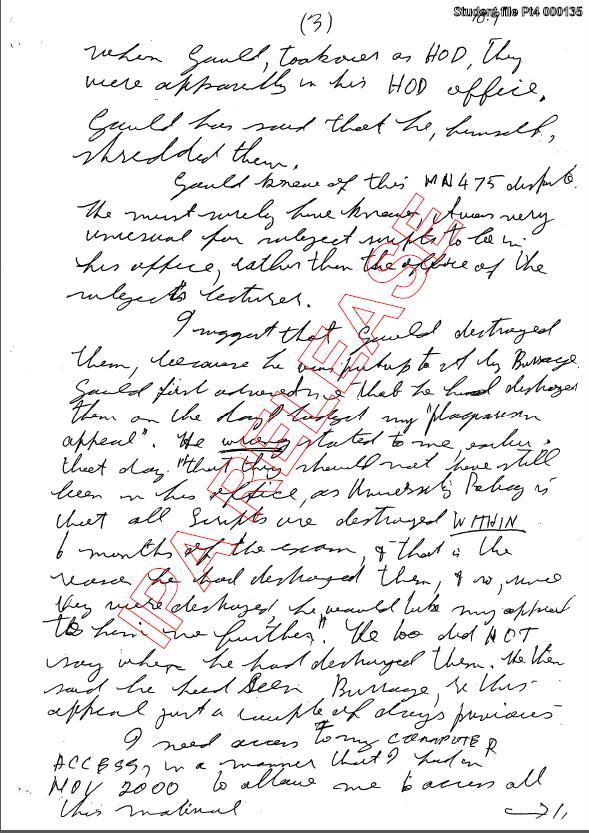 Student file Pt4 000135
(3)
when Gauld, took over as HOD, they
were apparently in his HOD office.
Gauld has said that he, himself,
shredded them.
Gauld knew of this MN475 dispute.
He must surely have known, it was very
unusual for subject scripts to be in
his office, rather than the office of the
subject's lecturer.
I suggest that Gauld destroyed
them, because he was put up to it by Burrage.
Gauld first advised me that he had destroyed
them on the day I lodged my "Plagiarism
appeal". He wrong stated to me earlier
that day "that they should not have still
been in his office, as University Policy is
that all scripts are destroyed WITHIN
6 months of the exam, & that is the
reason he had destroyed them, & so, since
they were destroyed he would like my appeal
to him no further." He too did NOT
say where he had destroyed them. He then
said he had seen Burrage, re this
appeal just a couple of days previous
I need access to my COMPUTER
ACCESS, in a manner that I had in
NOV 2000 to allow me to access all
this material
IPA RELEASE